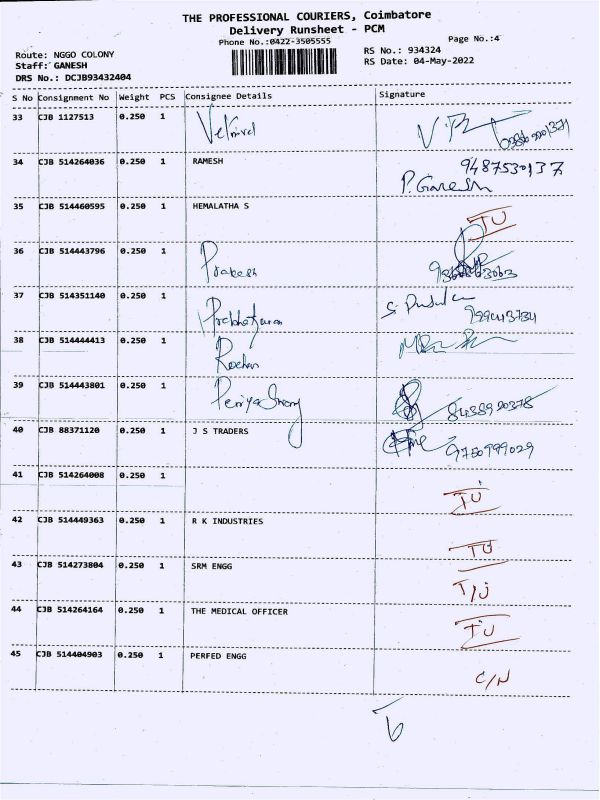 THE PROFESSIONAL COURIERS, Coimbatore
Delivery Runsheet - PCM
Phone No.:0422-3505555
Page No.:4
Route: NGGO COLONY
RS No.: 934324
Staff: GANESH
RS Date: 04-May-2022
DRS No.: DCJB93432404
S No Consignment No Weight PCS Consignee Details Signature
33 CJB 1127513 0.250 1
34 CJB 514264036 0.250 1 RAMESH 9487530137
P. Ganesh
35 CJB 514460595 0.250 1 HEMALATHA S IU
36 CJB 514443796 0.250 1 Prakash
37 CJB 514351140 0.250 1 Prabhakaran
38 CJB 514444413 0.250 1 Rochan
39 CJB 514443801 0.250 1 8438920378
40 CJB 88371120 0.250 1 J S TRADERS 9750999029
41 CJB 514264008 0.250 1 IU
42 CJB 514449363 0.250 1 R K INDUSTRIES IU
43 CJB 514273804 0.250 1 SRM ENGG I/U
44 CJB 514264164 0.250 1 THE MEDICAL OFFICER IU
45 CJB 514404903 0.250 1 PERFED ENGG C/N